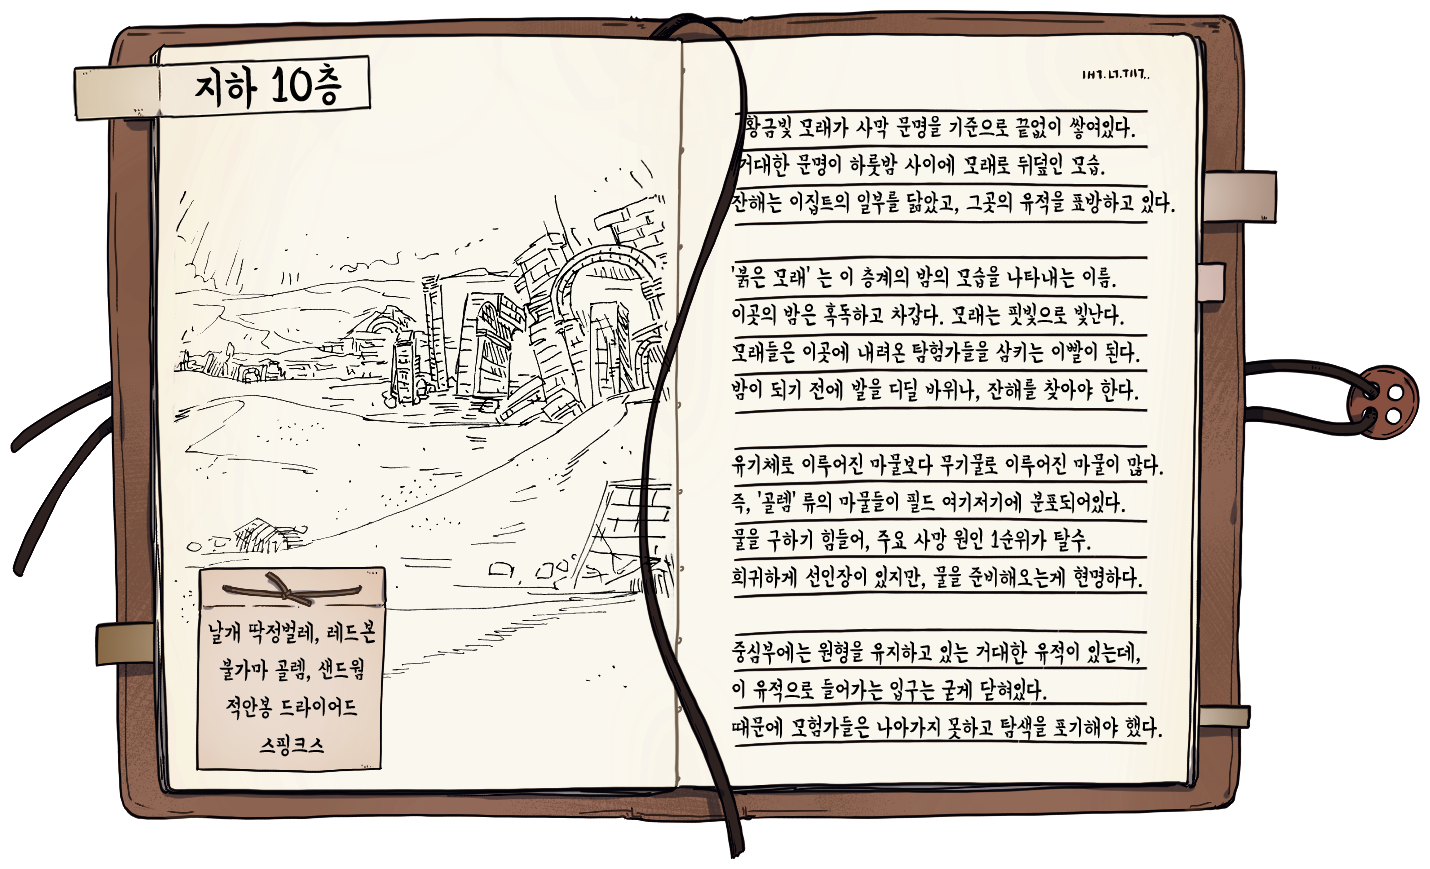 지하 10층
황금빛 모래가 사막 문명을 기준으로 끝없이 쌓여있다.
거대한 문명이 하룻밤 사이에 모래로 뒤덮인 모습.
잔해는 이집트의 일부를 닮았고, 그곳의 유적을 표방하고 있다.
'붉은 모래' 는 이 층계의 밤의 모습을 나타내는 이름.
이곳의 밤은 혹독하고 차갑다. 모래는 핏빛으로 빛난다.
모래들은 이곳에 내려온 탐험가들을 삼키는 이빨이 된다.
밤이 되기 전에 발을 디딜 바위나, 잔해를 찾아야 한다.
유기체로 이루어진 마물보다 무기물로 이루어진 마물이 많다.
즉, '골렘' 류의 마물들이 필드 여기저기에 분포되어있다.
물을 구하기 힘들어, 주요 사망 원인 1순위가 탈수.
희귀하게 선인장이 있지만, 물을 준비해오는게 현명하다.
중심부에는 원형을 유지하고 있는 거대한 유적이 있는데,
이 유적으로 들어가는 입구는 굳게 닫혀있다.
때문에 모험가들은 나아가지 못하고 탐색을 포기해야 했다.
날개 딱정벌레, 레드본
불가마 골렘, 샌드웜
적안봉 드라이어드
스핑크스